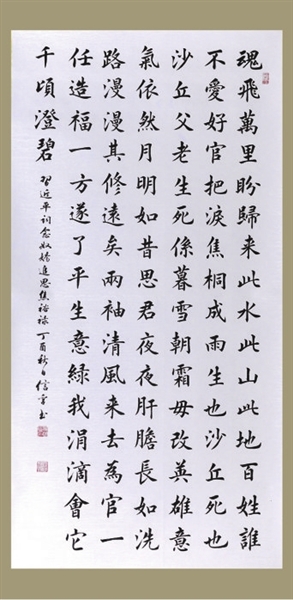 魂飛萬里盼歸来此水此山此地百姓誰
不愛好官把淚焦桐成雨生也沙丘死也
沙丘父老生死係暮雪朝霜毋改英雄意
氣依然月明如昔思君夜夜肝膽長如洗
路漫漫其修遠矣兩袖清風来去為官一
任造福一方遂了平生意綠我涓滴會它
千頃澄碧
習近平词念奴嬌追思焦裕禄丁酉秋日